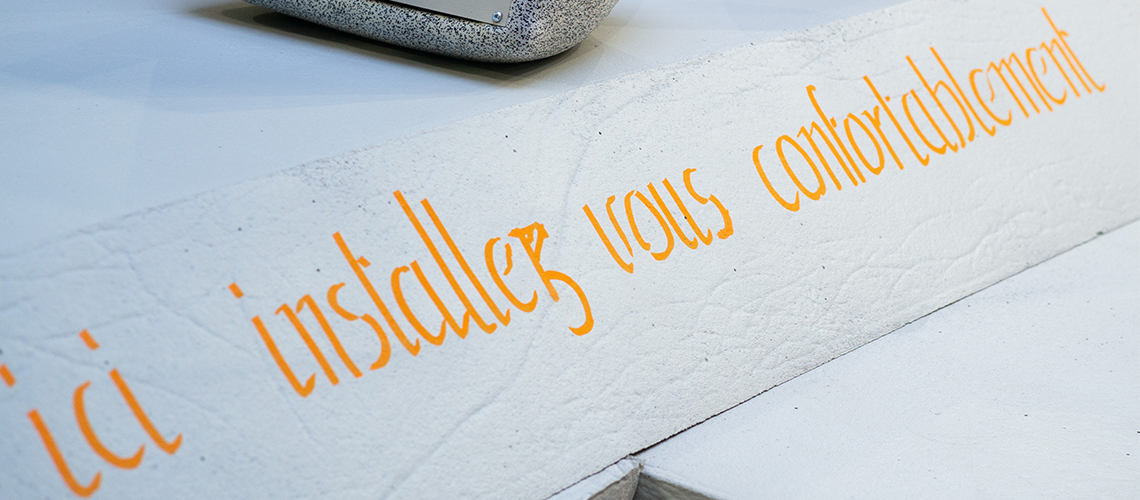 ici installez vous confortablement